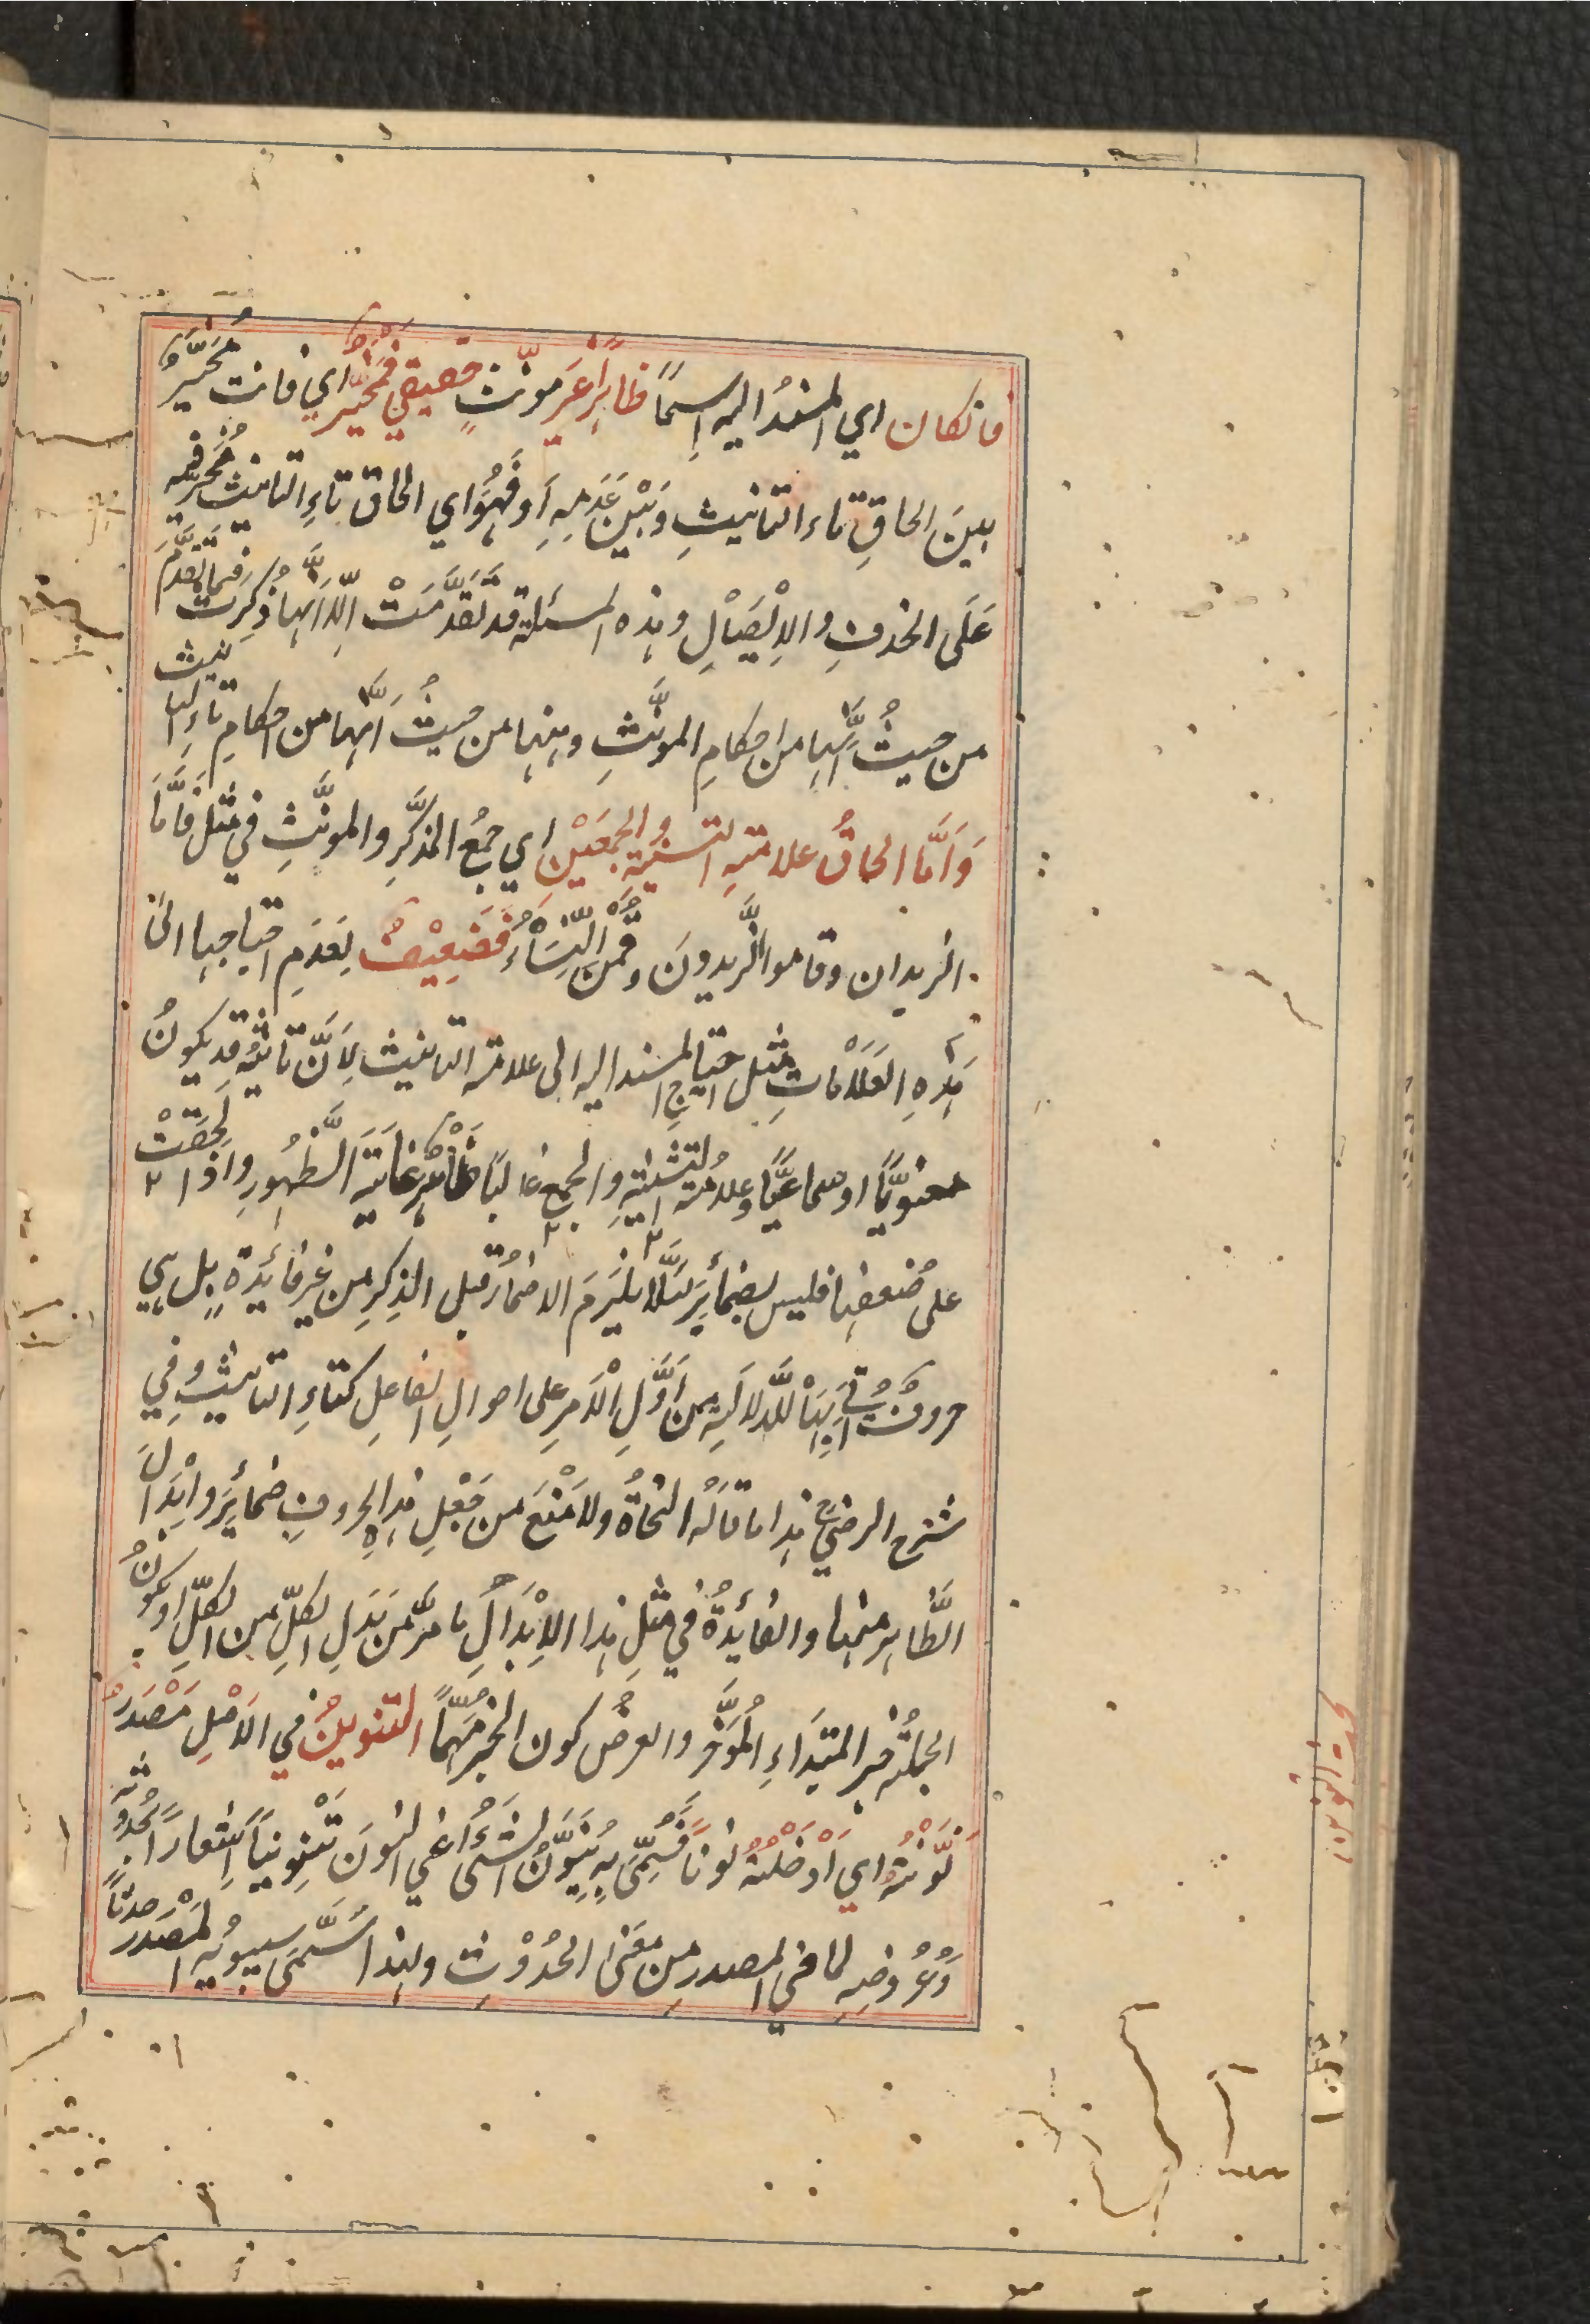 فان كان اي المسند اليه اِسمًا ظاهرًا غَيرَ مونّثٍ حقيقيٍّ فمُخَيَّرٌ اي فانت مُخَيَّرٌ
بينَ الحاقِ تاء التانيثِ وَبَيْنَ عَدَمِهِ اَو فَهُوَ اي الحاق تاءِ التانيث مُخَيَّرٌ فيه
عَلَى الحذفِ والاِيْصَالِ وهذه المسئلة قد تَقَدَّمَتْ اِلّا اَنَّها ذُكِرَتْ فيما تَقَدَّمَ
من حيثُ اِنَّها من احكامِ المونَّثِ وههنا من حيثُ اَنَّها من احكامِ تاءِ التانيث
وَاَمَّا الحاقُ علامتهِ التثنيةِ والجمعَيْنِ اي جمعُ المذكَّرِ والمونَّثِ في مثل قَامَا
الزيدان وقاموا الزَّيدونَ وقُمْنَ النِّسَاءُ فَضَعِيْفٌ لِعَدَمِ احتياجها الىٰ
هٰذِهِ العَلَامَاتِ مثل احتياجِ المسند اليه الى علامته التانيث لِاَنَّ تانيثَهُ قد يكونُ
معنويًّا او سماعيًّا وعلامةُ التثنيةِ والجمع غالبًا ظَاهِرٌ غَايَةَ الظُّهُورِ واذا لَحِقَتْ
على ضُعفها فليس بضمائِرَ لئلَّا يلزَمَ الاضمارُ قبل الذِكرِ من غير فائِدَةٍ بل هي
حروفٌ اُتِيَ بِهَا للدَّلالَةِ من اَوَّلِ الْاَمرِ على احوالِ الفاعلِ كتاءِ التانيثِ وفي
شرح الرضيّ هذا ما قالَهُ النُّحاةُ ولا مَنْعَ من جَعْلِ هذهِ الحروفِ ضمائِرَ واِبْدَالَ
الظَّاهِر منها والفائِدَةُ في مثلِ هذا الاِبْدَالِ ما مرَّ من بَدَلِ الكلِّ من الكلِّ او يكونُ
الجملةُ خبر المبتدَاءِ المُوَخَّر والغرضُ كون الخبر مُهِمًّا التنوينُ في الاَصْلِ مَصْدَرُ
نَوَّنْتُهُ اي اَدْخَلْتُهُ نونًا فَسُمِّيَ بِهِ مَا يُنَوَّنُ الشَّئُ اَعْنِي النونَ تَنْوِينًا اِشعارًا بحُدُوثِه
وَعُرُوضِهِ لما في المصدر من مَعْنَى الحُدُوْثِ ولهذا سَمَّى سيبويه المَصْدَرَ حدثًا